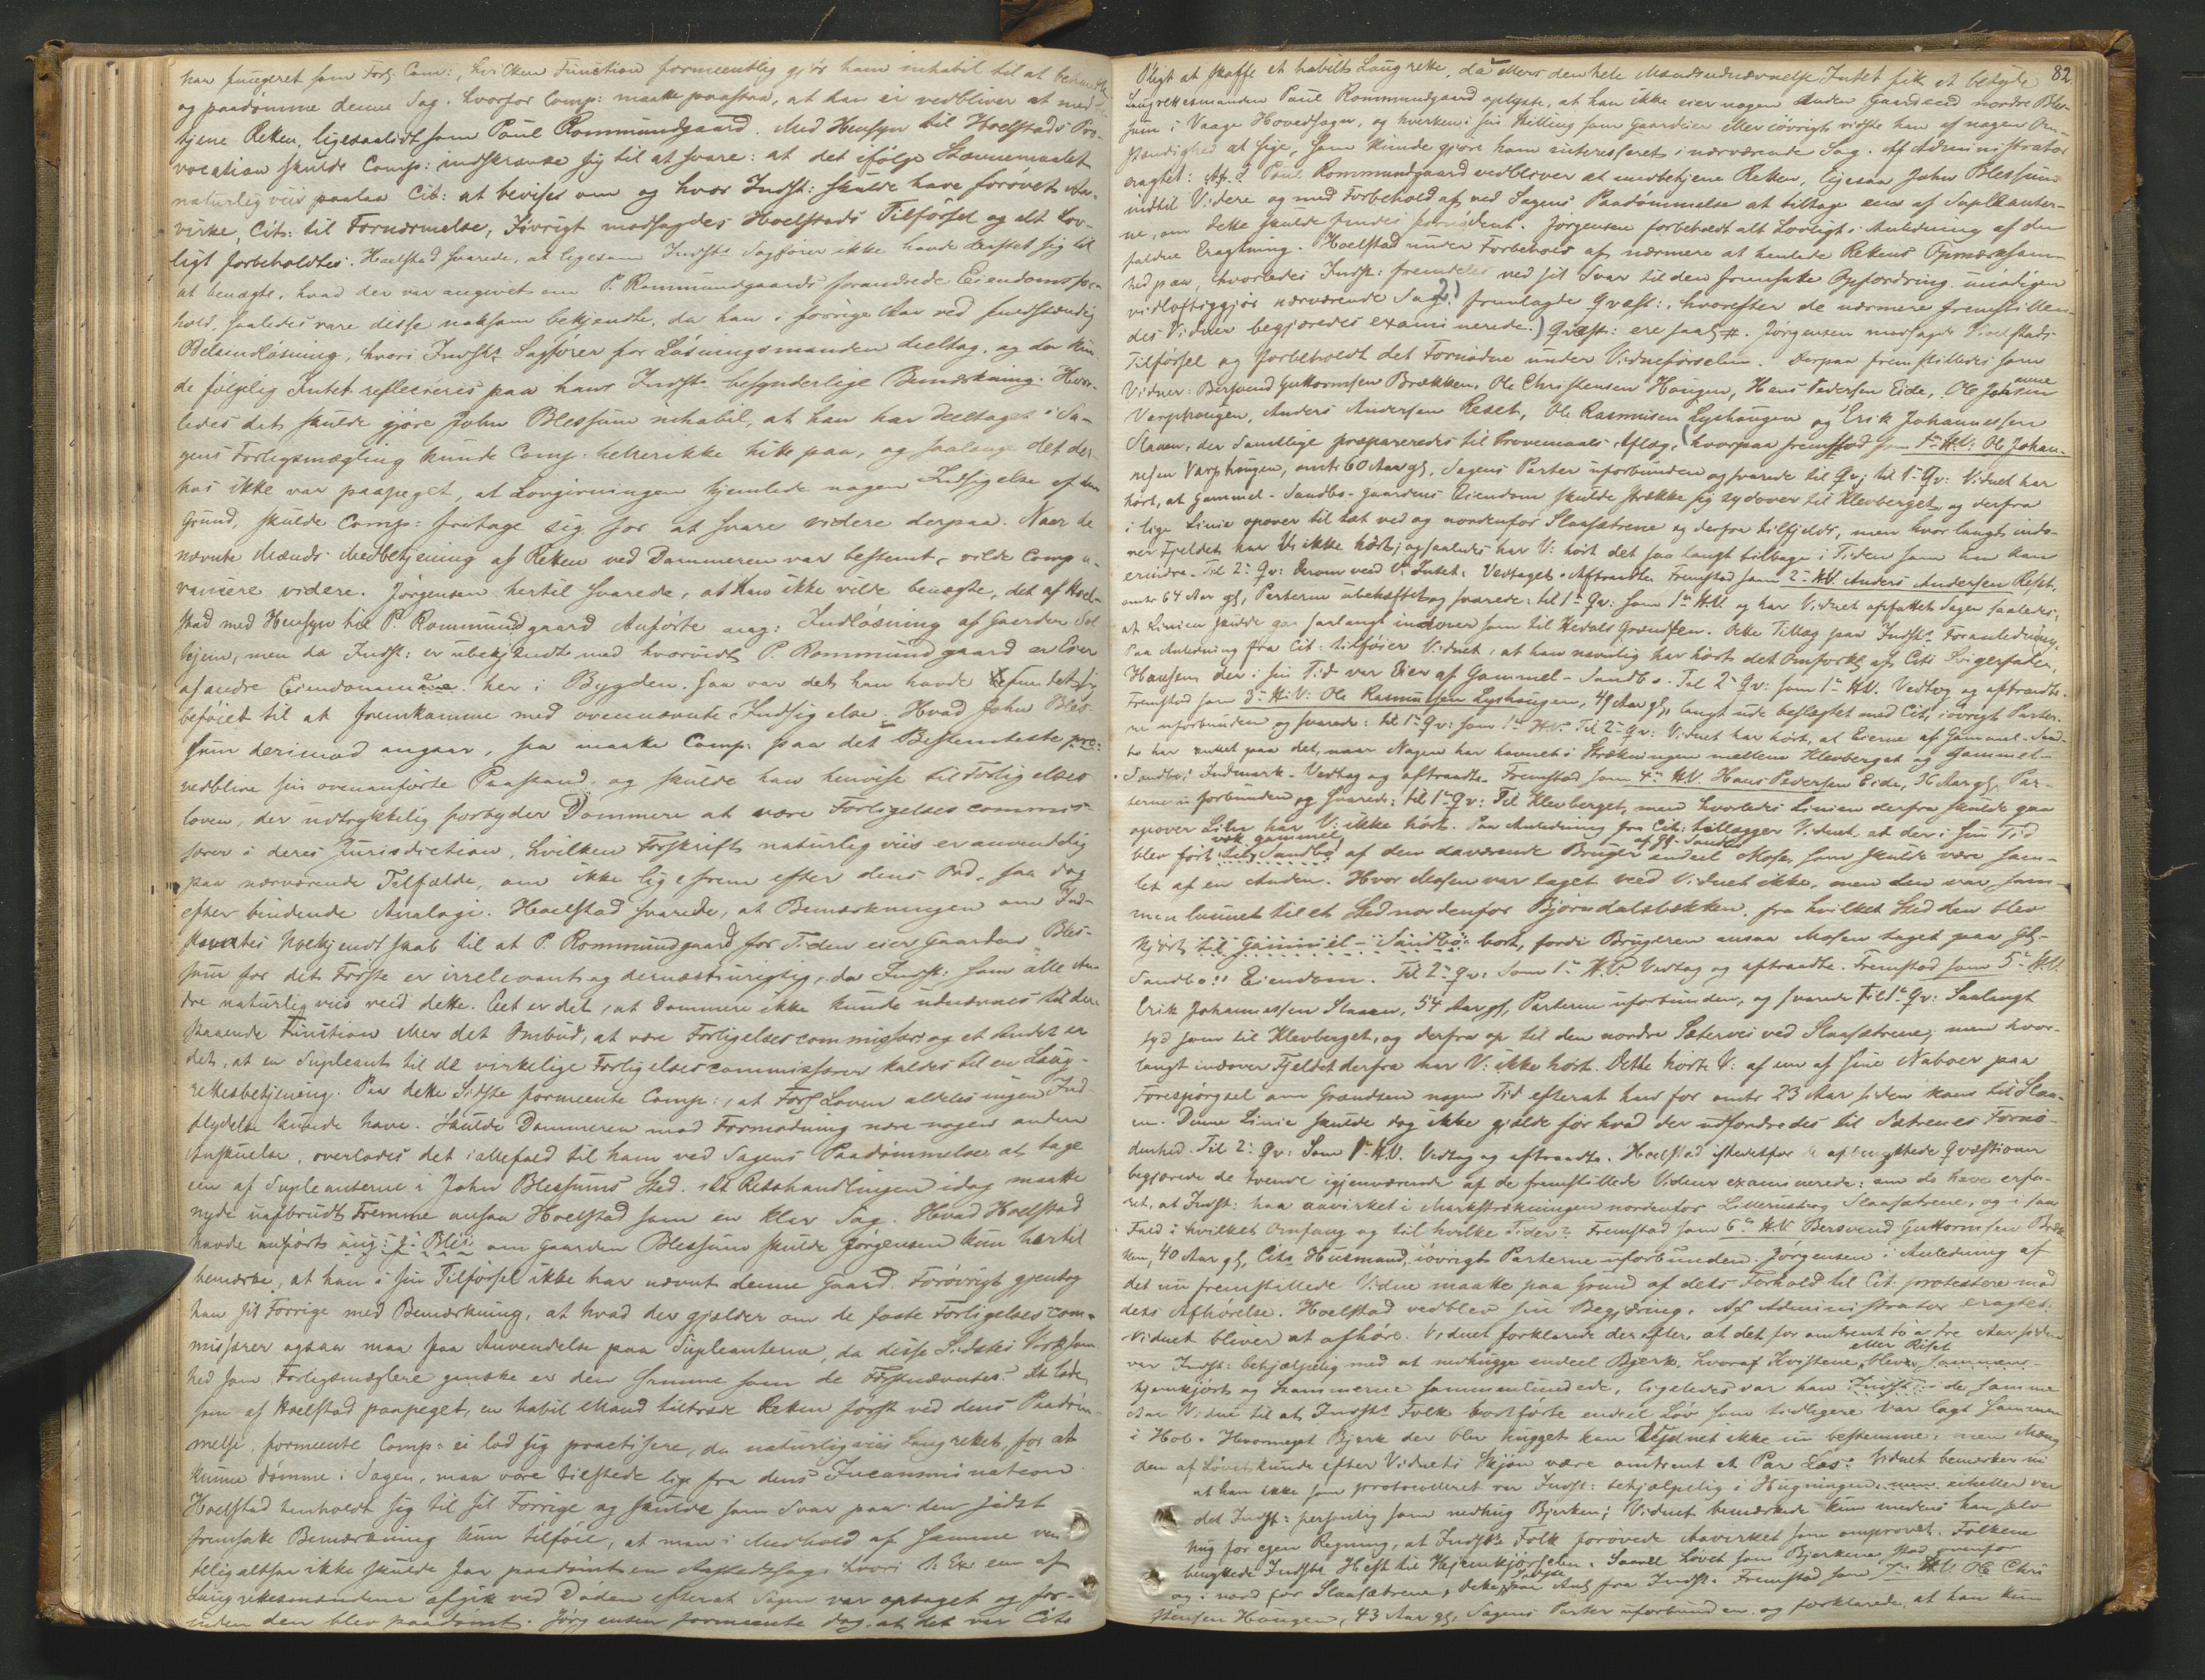 har fungeret som Forl: Com:, hvilken Function formeentlig gjör ham inhabil til at
og paadømme denne Sag. hvorfor Comp: maatte paastaa, at han ei vedbliver at med
tjene Retten, ligesaalidt som Paul Rommundgaard. Med Hensyn til Hoelstads Pro-
vocation skulde Comp: indskrænke sig til at svare: at det ifølge Stævnemaalet
naturligviis paalaa Cit: at bevises om og hvor Indst: skulde have forøvet Aa-
virke, Cit: til Fornærmelse, Iøvrigt modsagdes Hoelstads Tilførsel og alt Lov-
ligt forbeholdtes. Hoelstad svarede, at ligesom Indsts Sagfører ikke havde drøstet sig til
at benægte, hvad der var angivet om P. Rommundgaards forandrede Eiendomsfor-
hold, saaledes vare disse noksom bekjendte, da han i forrige Aar ved fuldstændig
Odelsindløsning, hvori Indsts Sagfører for Løsningsmanden deeltog, og der kun-
de følgelig Intet reflecteres paa hans Indsts besynderlige Bemærkning. Hvor-
ledes det skulde gjøre John Blessum inhabil, at han har deeltaget i Sa-
gens Forligsmægling kunde Comp: heller ikke hitte paa, og saalænge det der-
hos ikke var paapeget, at Lovgivningen hjemlede nogen Indsigelse af den
Grund, skulde Comp: fritage sig for at svare videre derpaa. Naar de
nævnte Mænds Medbetjening af Retten ved Dommeren var bestemt, vilde Comp a-
vancere videre. Jørgensen hertil svarede, at Han ikke vilde benægte, det af Hoel-
stad med Hensyn til P. Rommundgaard Anførte ang: Indløsning af Gaarden Sol
hjem, men da Indst: er ubekjendt med hvorvidt P. Rommundgaard er Eier
af andre Eiendomme her i Bygden, saa var det han havde fundet sig
beføiet til at fremkomme med ovennævnte Indsigelse. Hvad John Bles-
sum derimod angaar, saa maatte Comp: paa det Bestemteste
vedblive sin ovenanførte Paastand og skulde han henvise til Forligelses
loven, der udtrykkelig forbyder Dommere at være Forligelsescommis-
særer i deres Jurisdiction, hvilken Forskrift naturligviis er anvendelig
paa nærværende Tilfælde, om ikke ligefrem efter dens Ord, saa dog
efter bindende Analogi. Hoelstad svarede, at Bemærkningen om Ind-
stevntes Ubekjendtskab til at P. Rommundgaard for Tiden eier Gaarden Bles-
sum for det Første er irrelevant og dernæst urigtig, da Indst: som alle An-
dre naturligviis veed dette. Eet er det, at Dommere ikke kunde udnævnes til den
staaende Function eller det Ombud, at være Forligelsescommissær og et Andet er
det, at en Supleant til de virkelige Forligelsescommissærer kaldes til en Laug-
rettesbetjening. Paa dette Sidste formeente Comp:, at Forl Loven aldeles ingen Ind-
flydelse kunde have. Skulde Dommeren mod Formodning være nogen anden
Anskuelse, overlodes det i alfald til ham ved Sagens Paadømmelse at tage
een af Supleanterne i John Blessums Sted. At Retshandlingen idag maatte
nyde uafbrudt Fremme ansaa Hoelstad som en klar Sag. Hvad Hoelstad
havde anført om Gaarden Blessum skulde Jørgensen kun hertil
bemærke, at han i sin Tilførsel ikke har nævnt denne Gaard. Forøvrigt gjentog
han sit Forrige med Bemærkning, at hvad der gjælder om de faste Forligelsescom-
missærer ogsaa maa faa Anvendelse paa Supleanterne, da disse Sidstes Virksom-
hed som Forligsmæglere ganske er den samme som de Førstnævntes. At lade,
som af Hoelstad paapeget, en habil Mand tiltræde Retten først ved dens Paadøm-
melse, formeente Comp: ei lod sig practisere, da naturligviis Laugrettet, for at
kunne dømme i Sagen, maa være tilstede lige fra dens Incammination
Hoelstad henholdt sig til sit Forrige og skulde som Svar paa den sidst
fremsatte Bemærkning kun tilføie, at man i Medhold af samme ven
teligaltsaa ikke skulde faa paadømt en Aastedssag, hvori f: Ex: een af
Laugrettesmændene afgik ved Døden efterat Sagen var optaget og for-
inden den blev paadømt. Jørgensen formeente dog, at det var Cits
82
Pligt at skaffe et habilt Laugrette, da ellers den hele Mandsudnævnelse Intet fik at betyde
Laugrettesmanden Paul Rommundgaard oplyste, at han ikke eier nogen Anden Gaard end nordre Bles-
sum i Vaage Hovedsogn, og hverken i sin Stilling som Gaardeier eller iøvrigt vidste han af nogen Om-
stændighed at sige, som kunde gjøre ham interesseret i nærværende Sag. Af Administrator
eragtet: At Paul Rommundgaard vedbliver at medbetjene Retten, ligesaa John Blessum
indtil Videre og med Forbehold af, ved Sagens Paadømmelse at tiltage een af Supleanter-
ne, om dette skulde findes fornødent. Jørgensen forbeholdt alt Lovligt i Anledning af den
faldne Eragtning. Hoelstad under Forbehold af nærmere at henlede Rettens Opmærksom-
hed paa, hvorledes Indst: fremdeles ved sit Svar til den fremsatte Opfordring unødigen
vidløftiggjør nærværende Sag, 2) fremlagde Qvæst:, hvorefter de nærmere fremstillen-
des Vidner begjæredes examinerede. ) Qvæst: ere saal: #. Jørgensen modsagde Hoelstads
Tilførsel og forbeholdt det Fornødne under Vidneførselen. Derpaa fremstilledes som
Vidner: Bersvend Guttormsen Brækken, Ole Christensen Haugen, Hans Pedersen Eide, Ole Johannesen
Varphaugen, Anders Andersen Reset, Ole Rasmusen Lyshaugen og Erik Johannessen
Slaaen, der Samtlige præpareredes til Provemaals Aflæg, hvorpaa fremstod som 1ste H.V: Ole Johan-
nesen Varphaugen, omtr 60 Aar gl, Sagens Parter uforbunden og svarede til Qv; til 1ste Qv: Vidnet har
hørt, at Gammel-Sandbo-gaardens Eiendom skulde strække sig sydover til Klevberget, og derfra
i lige Linie opover til tæt ved og nordenfor Slaasætrene og derfra tilfjelds, men hvor langt indo-
ver Fjeldet har V: ikke hørt; og saaledes har V: hørt det saa langt tilbage i Tiden som han kan
erindre. Til 2: Qv: Derom veed V: Intet. Vedtaget. Aftraadte. Fremstod som 2: H.V. Anders Andersen Reset,
omtr 64 Aar gl, Parterne ubeslægtet og svarede: til 1ste Qv: som 1ste H.V. og har Vidnet opfattet Sagen saaledes,
at Linien skulde gaa saalangt indover som til Hedals Grændsen. Dette Tillæg paa Indsts Foranledning.
Paa Anledning fra Cit: tilføier Vidnet, at han navnlig har hørt det Omforkl af Cits Svigerfader,
Hansen der i sin Tid var Eier af Gammel-Sandbo. Til 2: Qv: som 1: H.V. Vedtog og aftraadte.
Fremstod som 3: H.V: Ole Rasmussen Lyshaugen, 49 Aar gl, langt ude beslægtet med Cit, iøvrigt Parter-
ne uforbunden og svarede: til 1: Qv: som 1ste H.V. Til 2: Qv: Vidnet har hørt, at Eierne af Gammel-Sand-
bo har anket paa det, naar Nogen har havnet i Strækningen mellem Klevberget og Gammel-
Sandbos Indmark. Vedtog og aftraadte. Fremstod som 4: H.V. Hans Pedersen Eide, 36 Aar gl, Par-
terne uforbunden og svarede: til 1: Qv: Til Klevberget, men hvorledes Linien derfra skulde gaa
opover Lien har V: ikke hørt. Paa Anledning fra Cit: tillægger Vidnet, at der i sin Tid
blev ført til Sandbo af den daværende Bruger af Gl. Sandbo endeel Mose, som skulde være sam-
let af en Anden. Hvor Mosen var taget veed Vidnet ikke, men den var sam-
men lunnet til et Sted nordenfor Bjørndalsbækken, fra hvilket Sted den blev
kjørt til Gammel-Sandbo bort, fordi Brugeren ansaa Mosen taget paa Gl-
Sandbos Eiendom. Til 2: Qv: som 1: H.V. Vedtog og aftraadte. Fremstod som 5: H.V.
Erik Johannessen Slaaen, 54 Aar gl, Parterne uforbunden, og svarede Til 1: Qv: Saalangt
syd som til Klevberget, og derfra op til den nordre Sætervei ved Slaasætrene; men hvor-
langt indover Fjeldet derfra har V: ikke hørt. Dette hørte V: af een af sine Naboer paa
Forespørgsel om Grændsen nogen Tid efterat han for omtr 23 Aar siden kom til Slaa-
en. Denne Linie skulde dog ikke gjælde for hvad der udfordredes til Sætrenes Fornø-
denhed. Til 2: Qv: Som 1: H.V. Vedtog og aftraadte. Hoelstad istedetfor de afbenyttede Qvæstioner
begjærede de tvende igjenværende af de fremstillede Vidner examinerede: om de have erfa-
ret, at Indst: har aavirket i Markstrækningen nordenfor og Slaasætrene, og i saa
Fald i hvilket Omfang og til hvilke Tider? Fremstod som 6: H.V. Bersvend Guttormsen Bræk-
ken, 40 Aar gl, Cits Huusmand, iøvrigt Parterne uforbunden. Jørgensen i Anledning af
det nu fremstillede Vidne maatte paa Grund af dets Forhold til Cit: protestere mod
dets Afhørelse. Hoelstad vedblev sin Begjæring. Af Administrator eragtes:
Vidnet bliver at afhøre. Vidnet forklarede derefter, at det for omtrent to à tre Aar siden
var Indst: behjælpelig med at nedhugge endeel Bjerk, hvoraf Kvistene eller Riset blev sammen-
hjemkjørt og Stammerne sammenlundede, ligeledes var han i de samme
Aar Vidne til at Indsts Folk bortførte endeel Løv som tidligere var lagt sammen
i Hob. Hvormeget Bjerk der blev hugget kan Vidnet ikke nu bestemme, men Mæng
den af Løvet kunde efter Vidnets Skjøn være omtrent et Par Læs. Vidnet bemærker nu
at han ikke som protocolleret var Indst: behjælpelig i Hugningen, eiheller var
det Indst: personlig som nedhug Bjerken; Vidnet bemærkede kun medens han selv
hug for egen Regning, at Indsts Folk forøvede Aavirket som omprovet. Folkene
benyttede Indsts Hest til Hjemkjørselen. Saavel Løvet som Bjerkene stod ovenfor
og i nord for Slaasætrene, dette paa Anl fra Indst. Fremstod som 7: H.V. Ole Chri
stensen Haugen, 43 Aar gl, Sagens Parter uforbunden og forklarede, at han kun